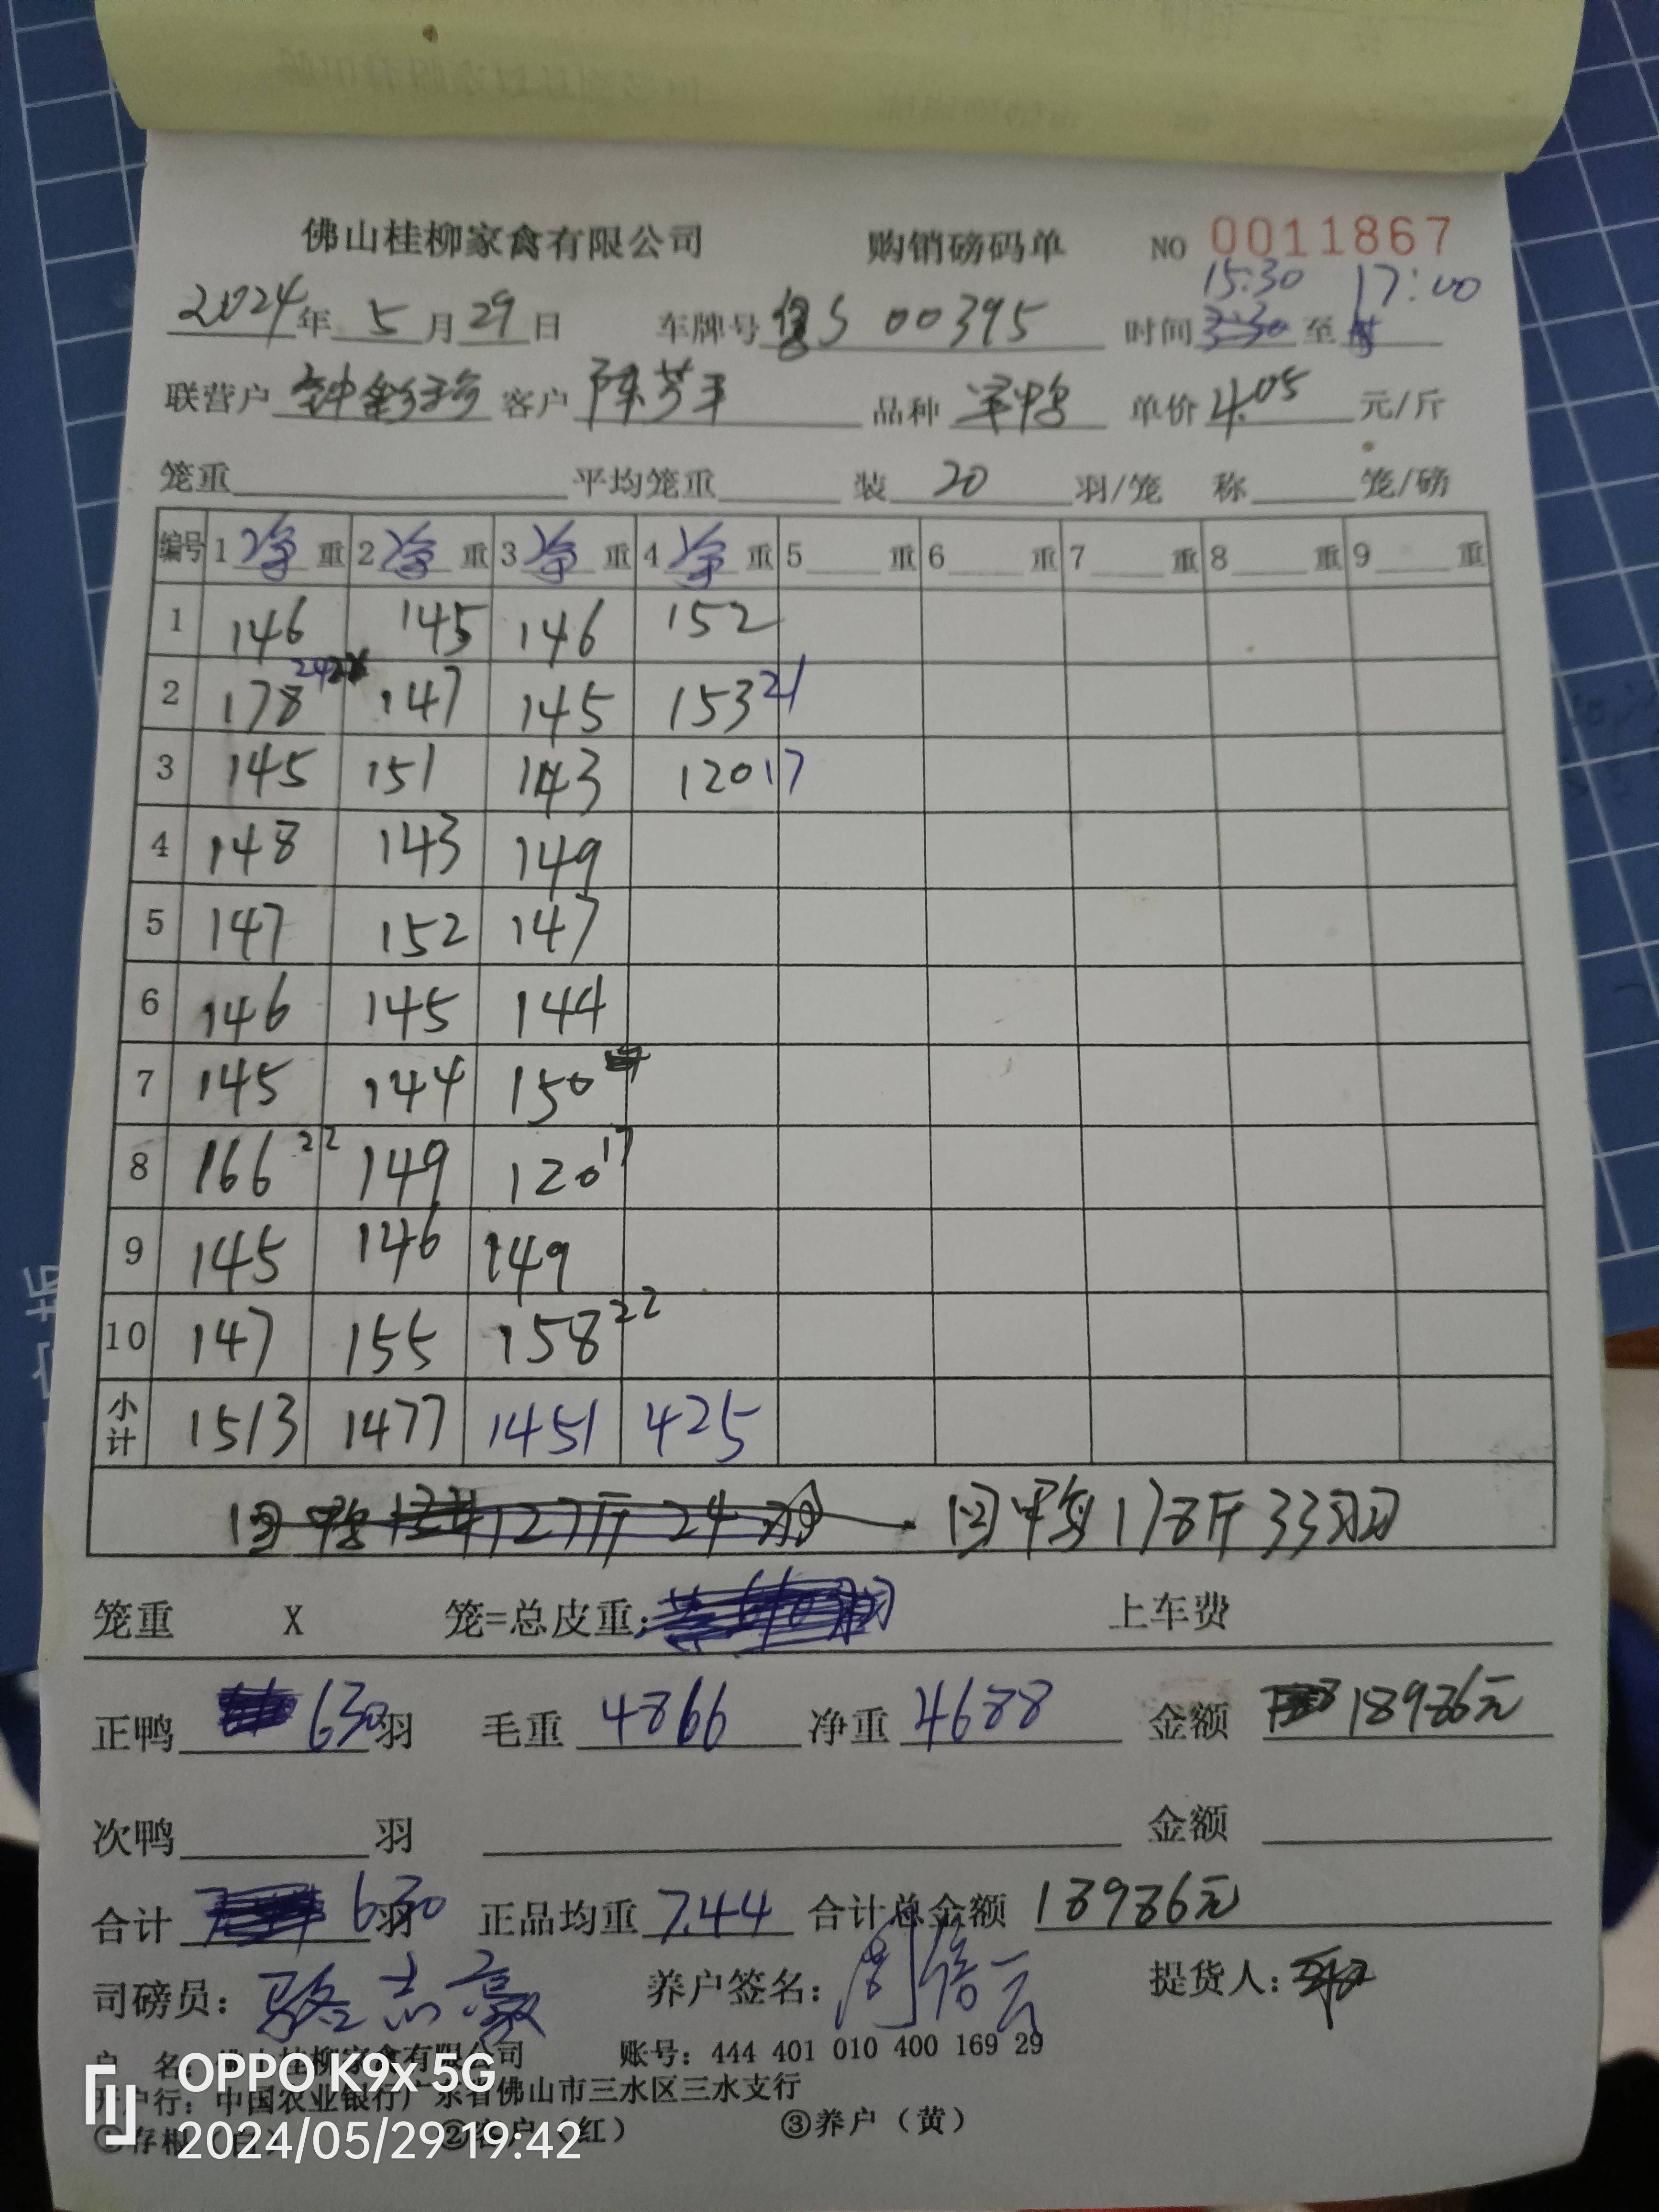 佛山桂柳家禽有限公司 购销磅码单 NO 0011867
15:30 17:00
2024年 5月29日 车牌号 S 00395 时间 3:30 至
联营户 钟彩珍 客户 陈芳平 品种 单价 4.05 元/斤
笼重 平均笼重 装 20 羽/笼 称 笼/磅
编号 1 净 重 2 净 重 3 净 重 4 净 重 5 重 6 重 7 重 8 重 9 重
1 146 145 146 152
2 178 24 147 145 153 21
3 145 151 143 120 17
4 148 143 149
5 147 152 147
6 146 145 144
7 145 144 150
8 166 22 149 120 17
9 145 146 149
10 147 155 158 22
小计 1513 1477 1451 425
回鸭 127斤 24羽 回鸭178斤33羽
笼重 X 笼=总皮重: 上车费
正鸭 630羽 毛重 4866 净重 4688 金额 18986元
次鸭 羽 金额
合计 630羽 正品均重 7.44 合计总金额 18986元
司磅员: 骆志豪 养户签名: 提货人:
户 名: 佛山桂柳家禽有限公司 账号: 444 401 010 400 169 29
开户行: 中国农业银行广东省佛山市三水区三水支行
①存根(白) ②客户(红) ③养户(黄)
OPPO K9x 5G
2024/05/29 19:42